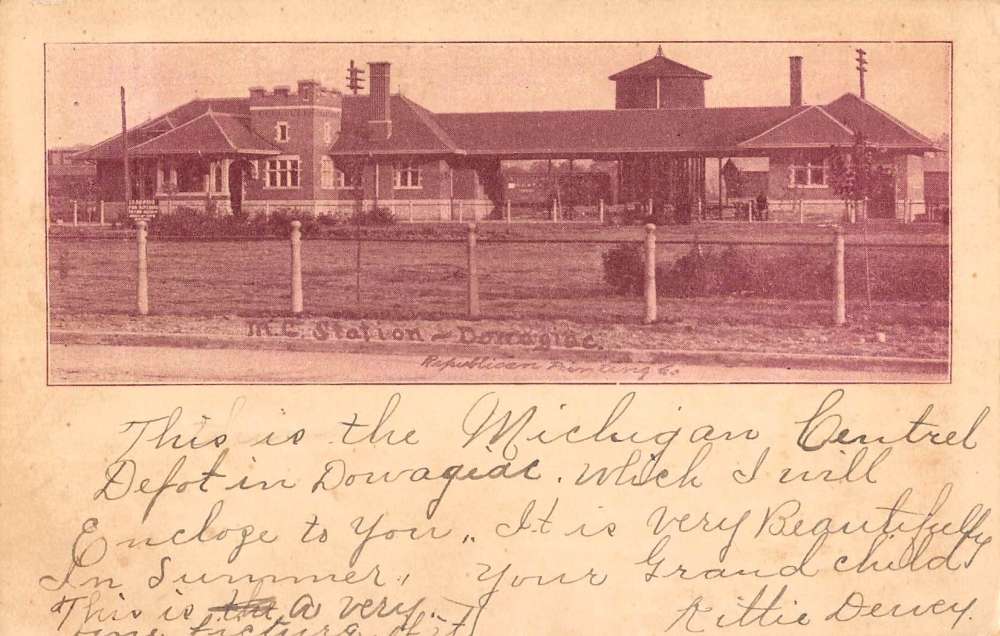 M.C. Station - Dowagiac.
Republican Printing Co
This is the Michigan Centrel
Depot in Dowagiac. Which I will
Encloze to You,. It is very Beautifully
In Summer, Your Grand child
This is the a very Kittie Dewey.
picture of it